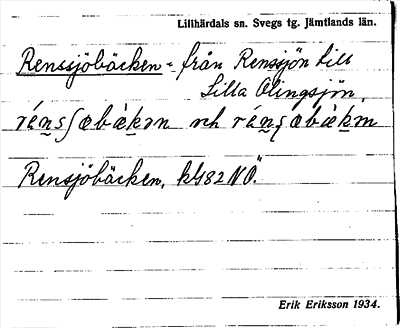 Lillhärdals sn. Svegs tg. Jämtlands län.
Renssjöbäcken - från Rensjön till
Lilla Olingsjön.
rénsʃæbæ̀kɔn och rénʃæbæ̀kɔn
Rensjöbäcken, kbl 82 NÖ.
Erik Eriksson 1934.